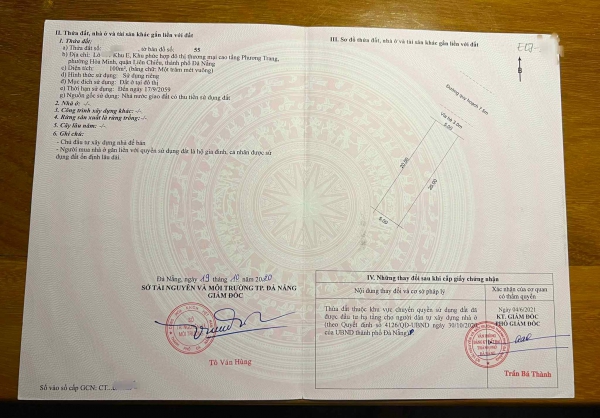 II. Thửa đất, nhà ở và tài sản khác gắn liền với đất
1. Thửa đất:
a) Thửa đất số: tờ bản đồ số: 55
b) Địa chỉ: Lô Khu E, Khu phức hợp đô thị thương mại cao tầng Phương Trang,
phường Hòa Minh, quận Liên Chiểu, thành phố Đà Nẵng
c) Diện tích: 100m², (bằng chữ: Một trăm mét vuông)
d) Hình thức sử dụng: Sử dụng riêng
đ) Mục đích sử dụng: Đất ở tại đô thị
e) Thời hạn sử dụng: Đến ngày 17/9/2059
g) Nguồn gốc sử dụng: Nhà nước giao đất có thu tiền sử dụng đất
2. Nhà ở: -/-
3. Công trình xây dựng khác: -/-
4. Rừng sản xuất là rừng trồng: -/-
5. Cây lâu năm: -/-
6. Ghi chú:
- Chủ đầu tư xây dựng nhà để bán
- Người mua nhà ở gắn liền với quyền sử dụng đất là hộ gia đình, cá nhân được sử
dụng đất ổn định lâu dài.
Đà Nẵng, ngày 19 tháng 10 năm 2020
SỞ TÀI NGUYÊN VÀ MÔI TRƯỜNG TP. ĐÀ NẴNG
GIÁM ĐỐC
Tô Văn Hùng
Số vào sổ cấp GCN: CT
III. Sơ đồ thửa đất, nhà ở và tài sản khác gắn liền với đất
B
Đường quy hoạch 7.5m
Vỉa hè 3.0m
5.00
20.00
20.00
5.00
IV. Những thay đổi sau khi cấp giấy chứng nhận
Nội dung thay đổi và cơ sở pháp lý
Xác nhận của cơ quan
có thẩm quyền
Thửa đất thuộc khu vực chuyển quyền sử dụng đất đã
được đầu tư hạ tầng cho người dân tự xây dựng nhà ở
(theo Quyết định số 4126/QĐ-UBND ngày 30/10/2020
của UBND thành phố Đà Nẵng)
Ngày 04/6/2021
KT. GIÁM ĐỐC
PHÓ GIÁM ĐỐC
Trần Bá Thành